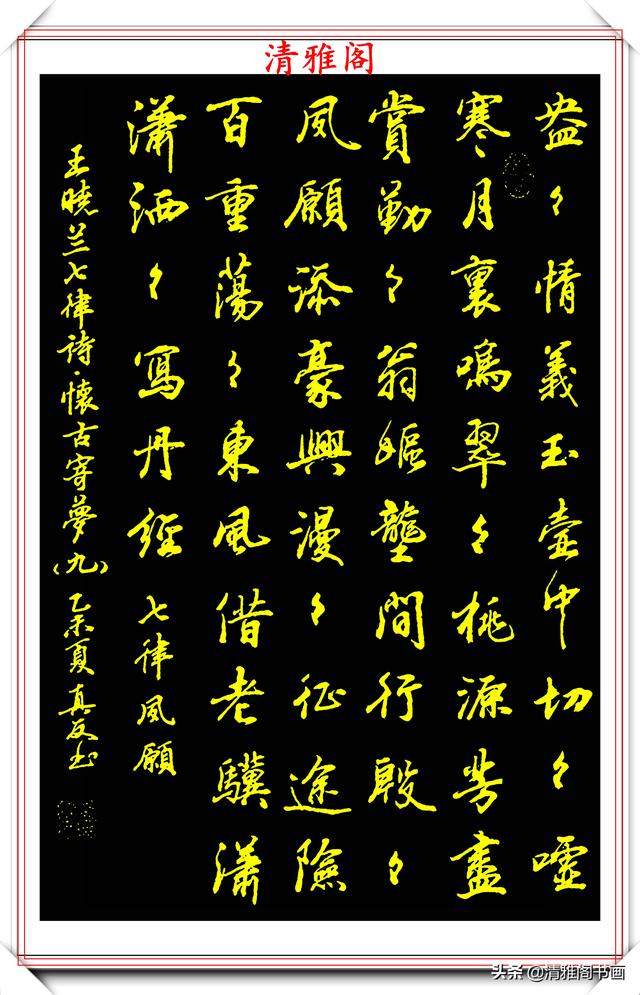 清雅阁
盎々情義玉壺中切々噓
寒月裏鳴翠々桃源芳盡
賞勤々翁嫗壟間行殷々
夙願添豪興漫々征途險
百重蕩々東風借老驥瀟
瀟洒々寫丹經 七律夙願
王曉兰七律诗·懷古寄夢(九) 乙未夏真友书
头条 @清雅阁书画